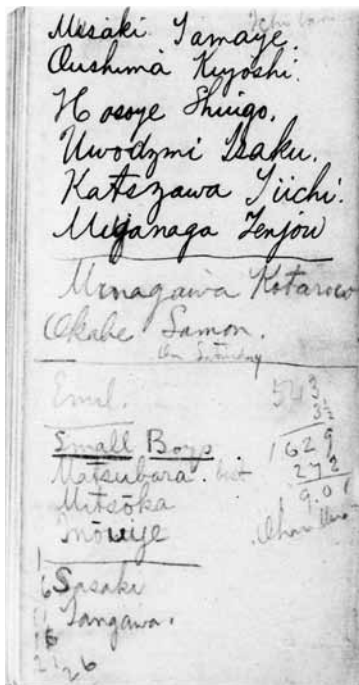 Misaki Tamaye.
Oushima Kiyoshi.
Hosoye Shingo.
Uwodzmi Isaku.
Katszawa Jiichi.
Miyanaga Tenjou
Minagawa Kotarow
Okabe Samon.
On Saturday
Emil. 543
3½
Small Boys 1629
Matsubara. best 272
Mitsōka 9.0
Inōuiye
1
6 Sasaki
11 Tangawa.
16
21 26